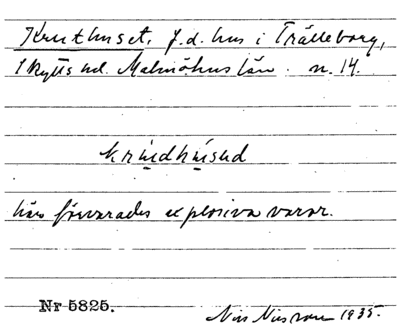 Kruthuset, f.d. hus i Trälleborg,
Skytts hd. Malmöhus län. n. 14.
krudhused
här förvarades explosiva varor.
Nr 5825.
Nils Nilsson 1935.